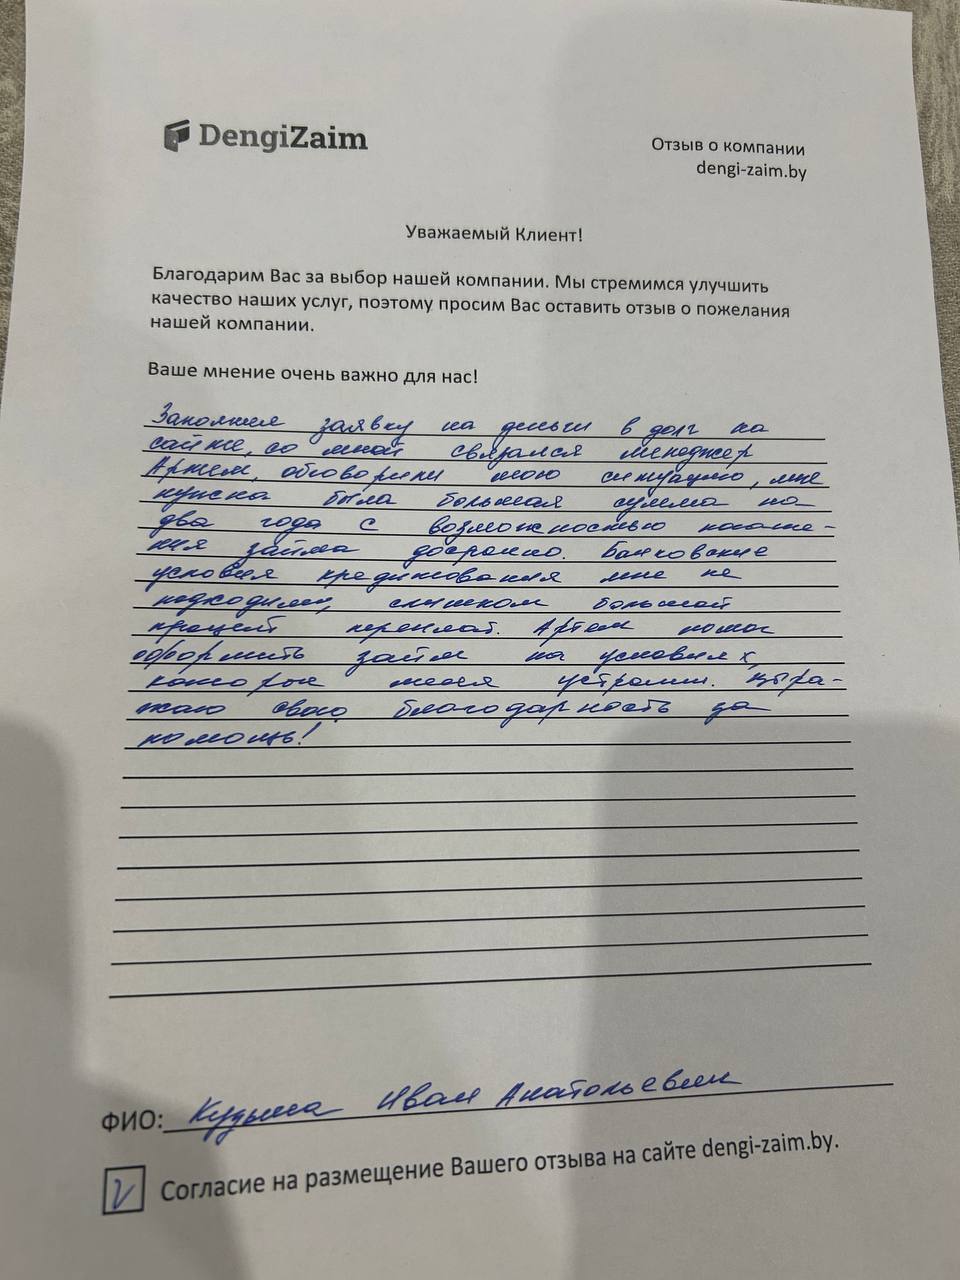 DengiZaim
Отзыв о компании
dengi-zaim.by
Уважаемый Клиент!
Благодарим Вас за выбор нашей компании. Мы стремимся улучшить
качество наших услуг, поэтому просим Вас оставить отзыв о пожелания
нашей компании.
Ваше мнение очень важно для нас!
Заполнил заявку на деньги в долг на
сайте, со мной связался менеджер
Артем, обговорили мою ситуацию, мне
нужна была большая сумма на
два года с возможностью погаше-
ния займа досрочно. Банковские
условия кредитования мне не
подходили, слишком большой
процент переплат. Артем помог
оформить займ на условиях,
которые меня устроили. Выра-
жаю свою благодарность за
помощь!
ФИО: Кузьма Иван Анатольевич
V Согласие на размещение Вашего отзыва на сайте dengi-zaim.by.